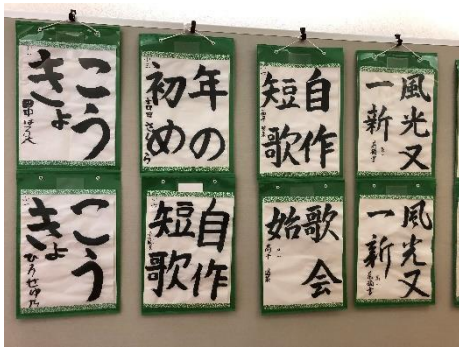 こう
きょ
年の
初め
自作
短歌
風光又
一新
こう
きょ
自作
短歌
歌会
始
風光又
一新